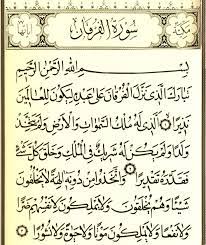 مكية سورة الفرقان آياتها
بسم الله الرحمن الرحيم
تبارك الذي نزل الفرقان على عبده ليكون للعالمين
نذيرا ۝ الذي له ملك السموات والأرض ولم يتخذ
ولدا ولم يكن له شريك في الملك وخلق كل شيء
فقدره تقديرا ۝ واتخذوا من دونه آلهة لا يخلقون
شيئا وهم يخلقون ولا يملكون لأنفسهم ضرا
ولا نفعا ولا يملكون موتا ولا حياة ولا نشورا